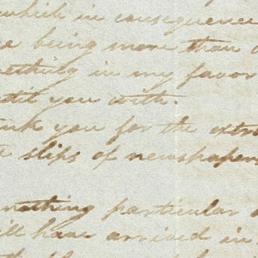 which in consequence
being more than
something in my favor
until you with.
you for the extr
slips of newspapers
nothing particular
have arrived in